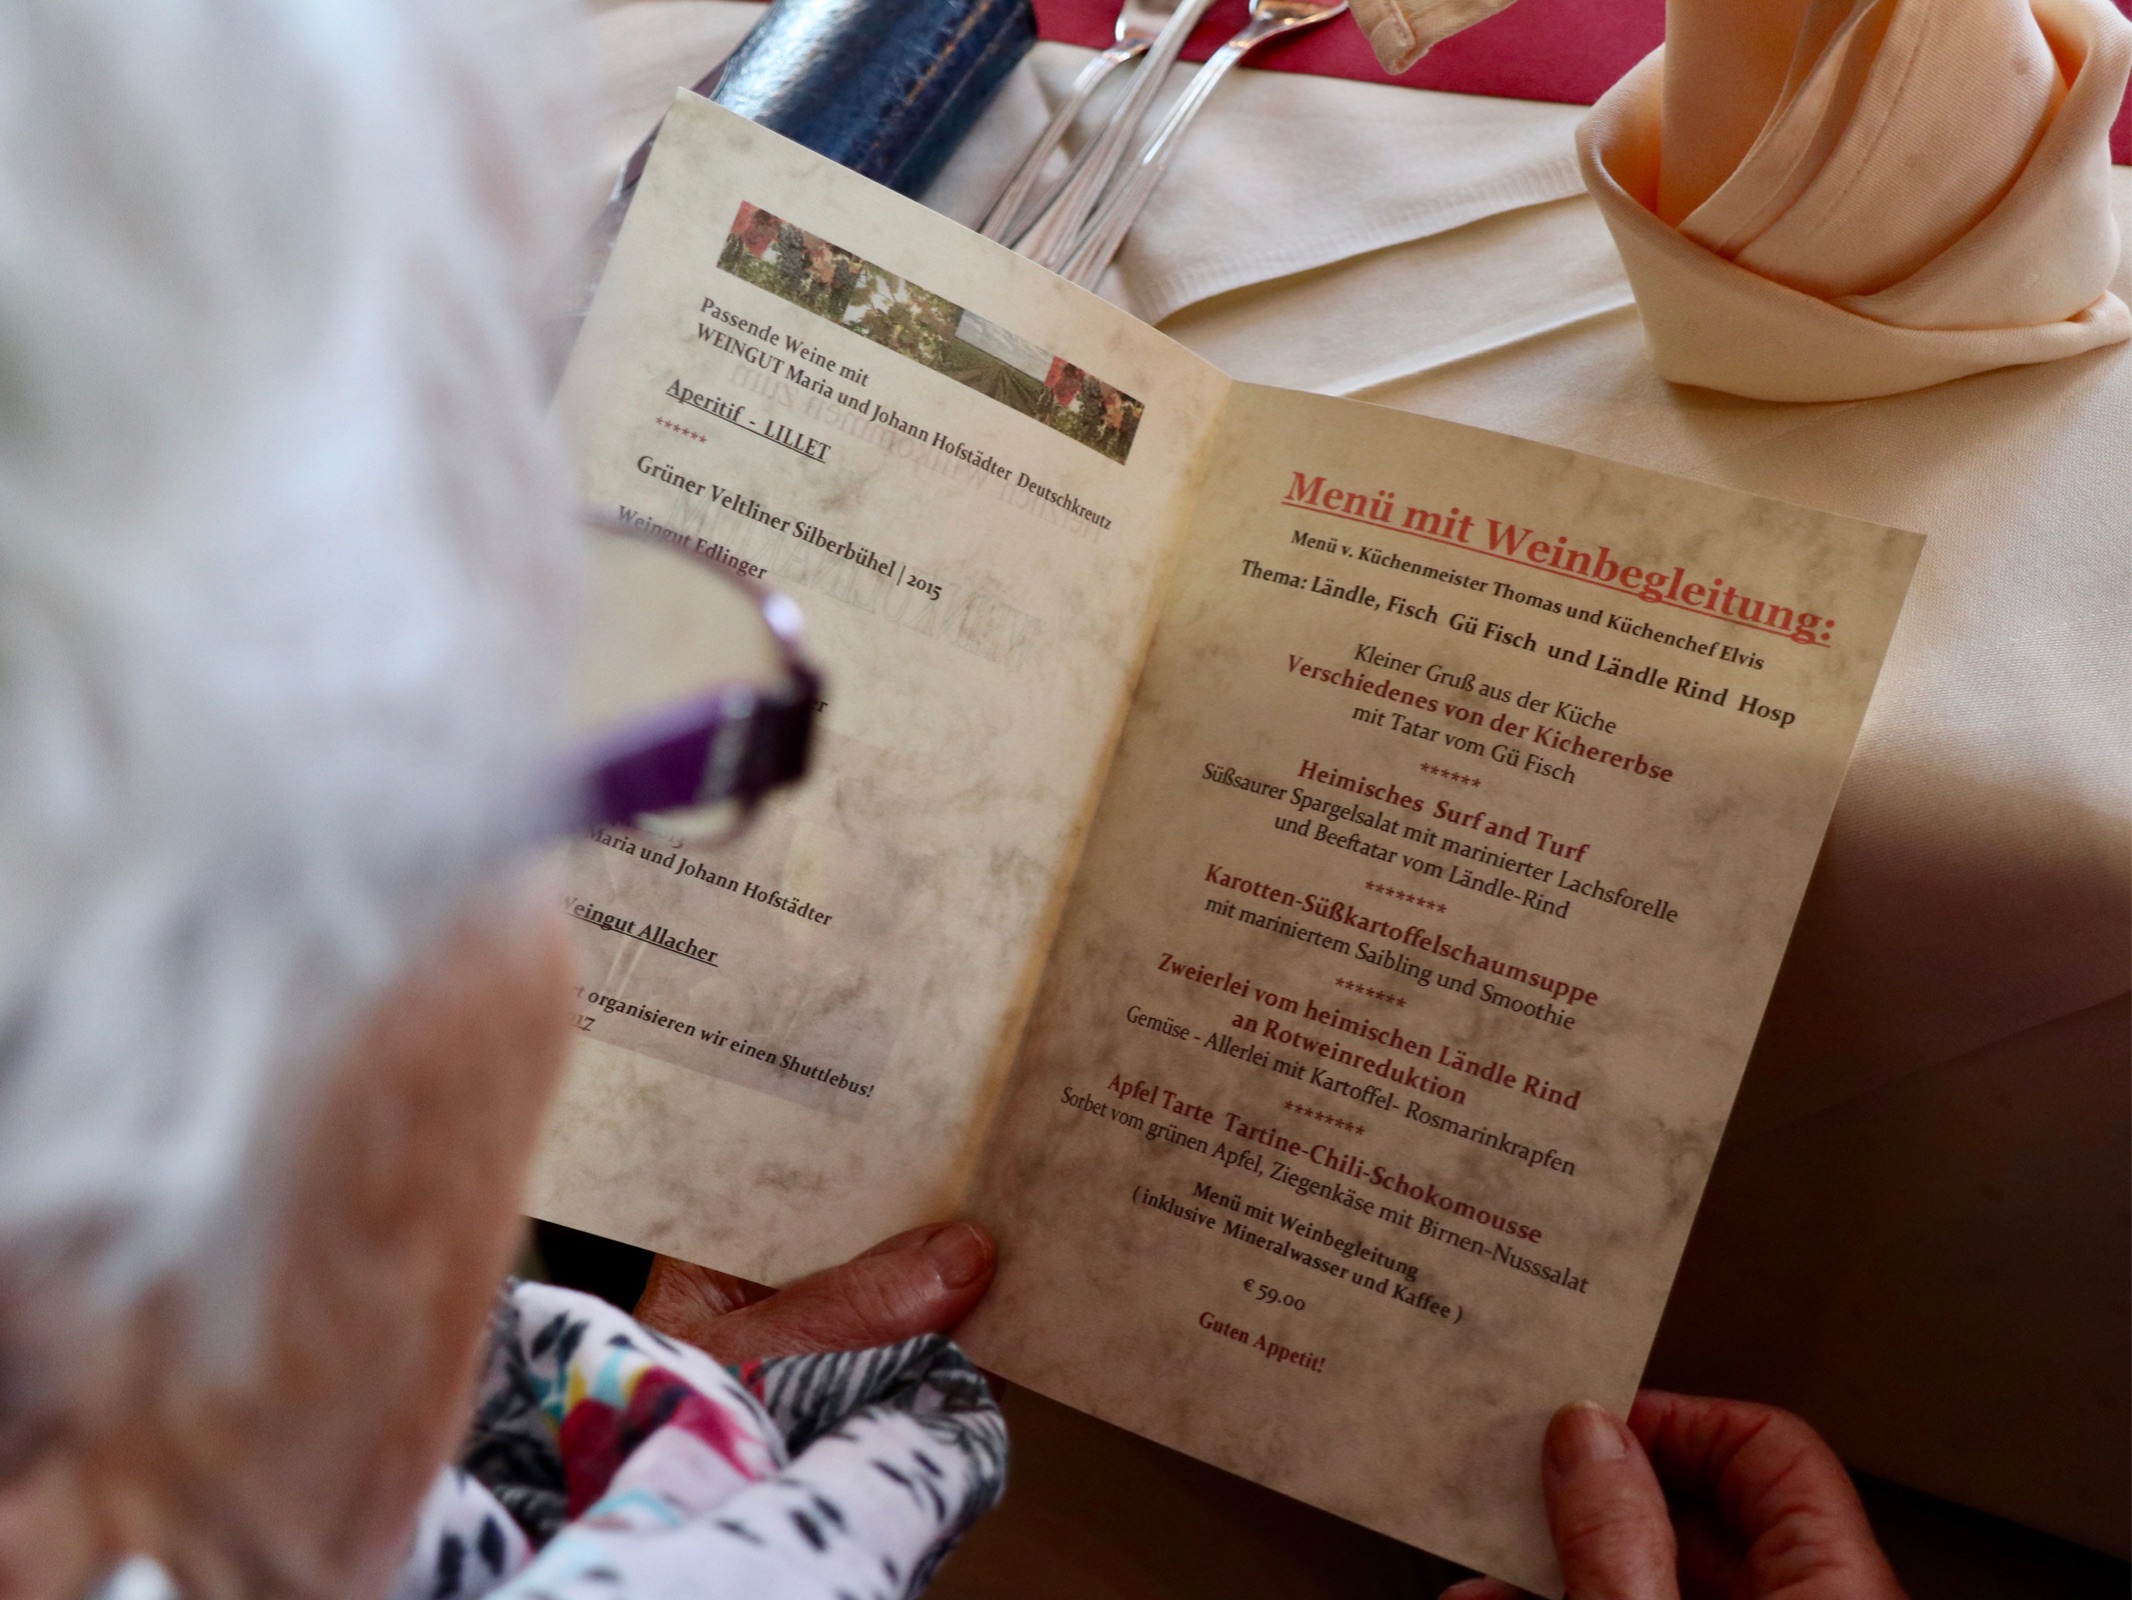 Passende Weine mit
WEINGUT Maria und Johann Hofstädter Deutschkreutz
Aperitif - LILLET
******
Grüner Veltliner Silberbühel | 2015
Weingut Edlinger
Maria und Johann Hofstädter
Weingut Allacher
organisieren wir einen Shuttlebus!
Menü mit Weinbegleitung:
Menü v. Küchenmeister Thomas und Küchenchef Elvis
Thema: Ländle, Fisch Gü Fisch und Ländle Rind Hosp
Kleiner Gruß aus der Küche
Verschiedenes von der Kichererbse
mit Tatar vom Gü Fisch
******
Heimisches Surf and Turf
Süßsaurer Spargelsalat mit marinierter Lachsforelle
und Beeftatar vom Ländle-Rind
********
Karotten-Süßkartoffelschaumsuppe
mit mariniertem Saibling und Smoothie
*******
Zweierlei vom heimischen Ländle Rind
an Rotweinreduktion
Gemüse - Allerlei mit Kartoffel- Rosmarinkrapfen
********
Apfel Tarte Tartine-Chili-Schokomousse
Sorbet vom grünen Apfel, Ziegenkäse mit Birnen-Nusssalat
Menü mit Weinbegleitung
( inklusive Mineralwasser und Kaffee )
€ 59.00
Guten Appetit!